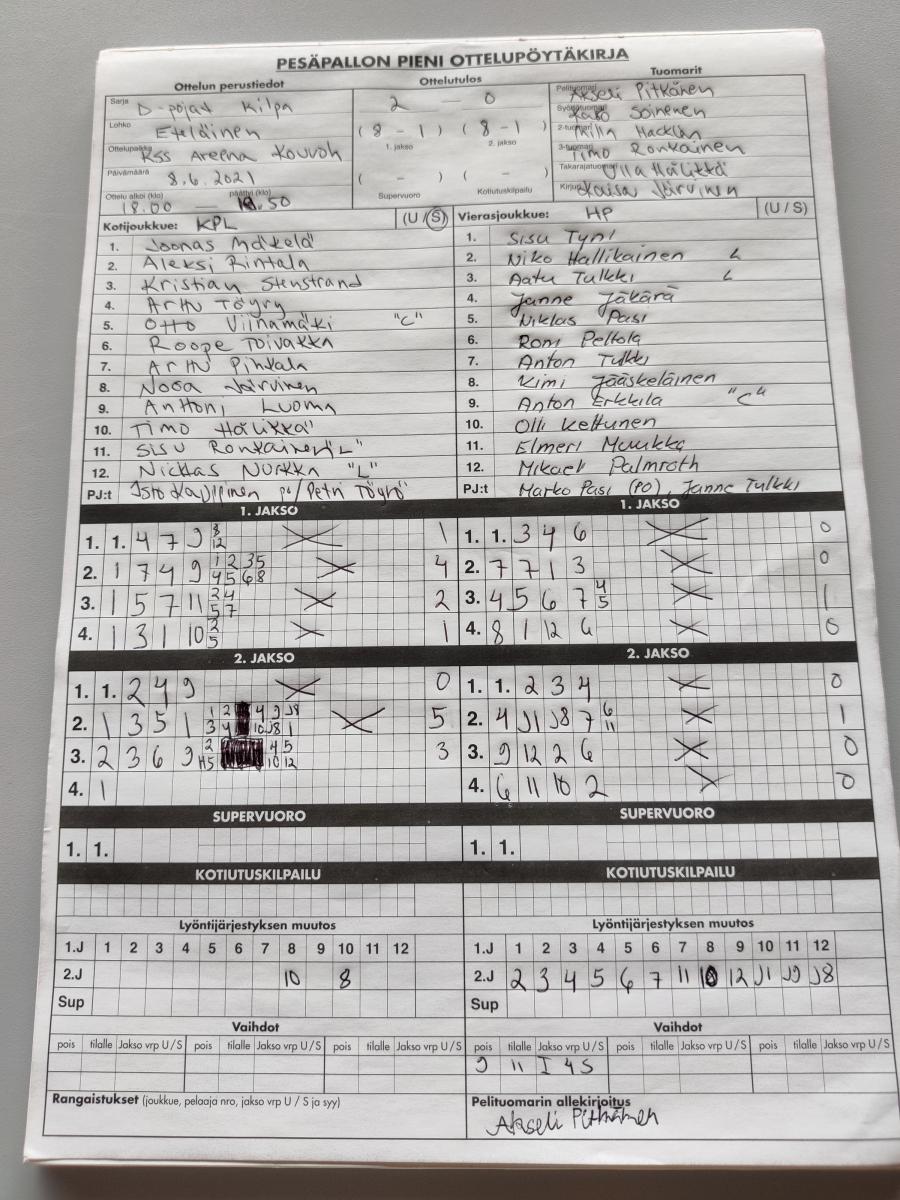 PESÄPALLON PIENI OTTELUPÖYTÄKIRJA
Ottelun perustiedot
Ottelutulos
Tuomarit
Sarja D-pojat Kilpa
Lohko Eteläinen
Ottelupaikka KSS Areena Kouvola
Päivämäärä 8.6.2021
Ottelu alkoi (klo) päättyi (klo)
18.00 — .50
2 — 0
(8 - 1) (8 - 1)
1. jakso 2. jakso
( - ) ( - )
Supervuoro Kotiutuskilpailu
Pelituomari Akseli Pitkänen
Syöttötuomari Soinenen
2-tuomari Milla Hacklin
3-tuomari Timo Ronkainen
Takarajatuomari Ulla Hälikkä
Kirjuri Kaisa Järvinen
Kotijoukkue: KPL (U / S)
1. Joonas Mäkelä
2. Aleksi Rintala
3. Kristian Stenstrand
4. Arttu Töyry
5. Otto Viinamäki "C"
6. Roope Toivakka
7. Arttu Pihtala
8. Nooa Järvinen
9. Anttoni Luoma
10. Timo Hälikkä
11. Sisu Ronkainen "L"
12. Nicklas Nurkka "L"
PJ:t Kauppinen / Petri Töyry
Vierasjoukkue: HP (U / S)
1. Sisu Tyni
2. Niko Hallikainen L
3. Aatu Tulkki L
4. Janne Jäkärä
5. Niklas Pasi
6. Roni Peltola
7. Anton Tulkki
8. Kimi Jääskeläinen
9. Anton Erkkilä "C"
10. Olli Kettunen
11. Elmeri Muukka
12. Mikael Palmroth
PJ:t Marko Pasi (PO), Janne Tulkki
1. JAKSO
1. 1. 4 7 9 8 12 1
2. 1 7 4 9 1 2 3 5 4 5 6 8 4
3. 1 5 7 11 2 4 5 7 2
4. 1 3 1 10 2 5 1
1. JAKSO
1. 1. 3 4 6 0
2. 7 7 1 3 0
3. 4 5 6 7 4 5 1
4. 8 1 12 6 0
2. JAKSO
1. 1. 2 4 9 0
2. 1 3 5 1 1 2 4 9 J8 3 4 10 J8 1 5
3. 2 3 6 9 2 4 5 H5 10 12 3
4. 1
2. JAKSO
1. 1. 2 3 4 0
2. 4 J1 J8 7 6 11 1
3. 9 12 2 6 0
4. 6 11 10 2 0
SUPERVUORO
1. 1.
SUPERVUORO
1. 1.
KOTIUTUSKILPAILU
KOTIUTUSKILPAILU
Lyöntijärjestyksen muutos
1.J 1 2 3 4 5 6 7 8 9 10 11 12
2.J 10 8
Sup
Lyöntijärjestyksen muutos
1.J 1 2 3 4 5 6 7 8 9 10 11 12
2.J 2 3 4 5 6 7 11 10 12 J1 J9 J8
Sup
Vaihdot
pois tilalle Jakso vrp U / S pois tilalle Jakso vrp U / S pois tilalle Jakso vrp U / S
Vaihdot
pois tilalle Jakso vrp U / S pois tilalle Jakso vrp U / S pois tilalle Jakso vrp U / S
9 11 I 4 S
Rangaistukset (joukkue, pelaaja nro, jakso vrp U / S ja syy)
Pelituomarin allekirjoitus
Akseli Pitkänen